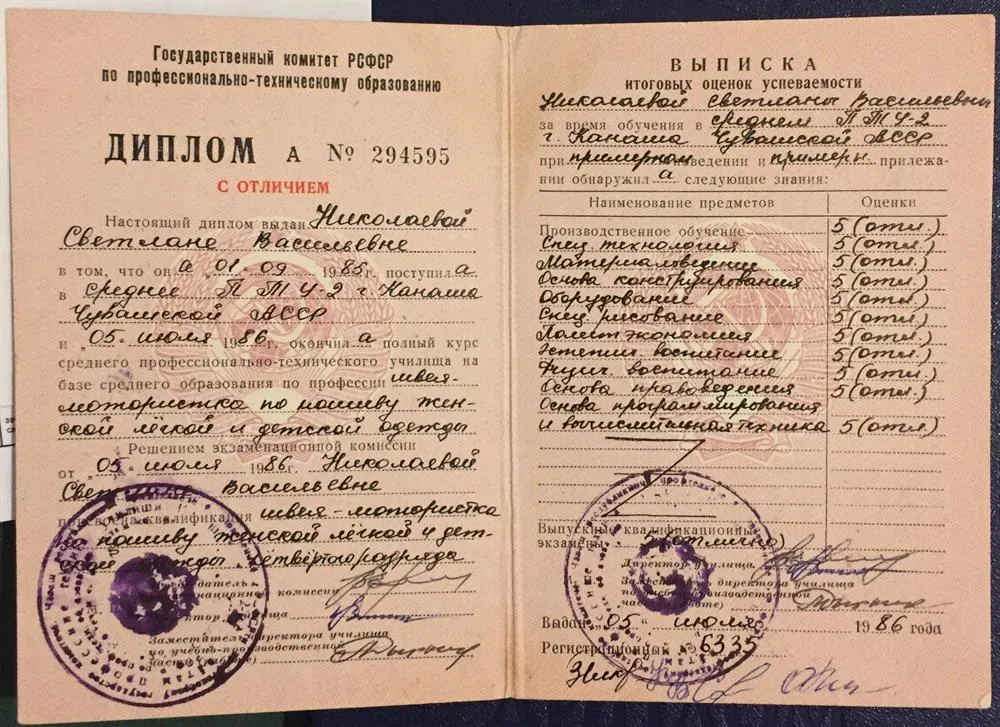 Государственный комитет РСФСР
по профессионально-техническому образованию
ДИПЛОМ А № 294595
С ОТЛИЧИЕМ
Настоящий диплом выдан Николаевой
Светлане Васильевне
в том, что он а „01-09 1985г. поступил а
в среднее ПТУ-2 г. Канаша
Чувашской АССР
и „05" июля 1986г. окончил а полный курс
среднего профессионально-технического училища на
базе среднего образования по профессии швея-
мотористка по пошиву жен-
ской лёгкой и детской одежды
Решением экзаменационной комиссии
от „05" июля 1986г. Николаевой
Светлане Васильевне
присвоена квалификация швея-мотористка
по пошиву женской лёгкой и дет-
ской одежды четвёртого разряда
Председатель
экзаменационной комиссии
Директор училища
Заместитель директора училища
по учебно-производственной
части (работе)
ВЫПИСКА
итоговых оценок успеваемости
Николаевой Светланы Васильевны
за время обучения в среднем ПТУ-2
г. Канаша Чувашской АССР
при примерном поведении и примерн. прилежа-
нии обнаружил а следующие знания:
Наименование предметов Оценки
Производственное обучение 5 (отл.)
Спец технология 5 (отл.)
Материаловедение 5 (отл.)
Основа конструирования 5 (отл.)
Оборудование 5 (отл.)
Спец рисование 5 (отл.)
Полит экономия 5 (отл.)
Эстетич воспитание 5 (отл.)
Физич. воспитание 5 (отл.)
Основа правоведения 5 (отл.)
Основа программирования
и вычислительная техника 5 (отл.)
Выпускные квалификационные
экзамены 5 (отлично)
Директор училища
Заместитель директора училища
по учебно-производственной
части (работе)
Выдан „05" июля 1986 года
Регистрационный № 6335